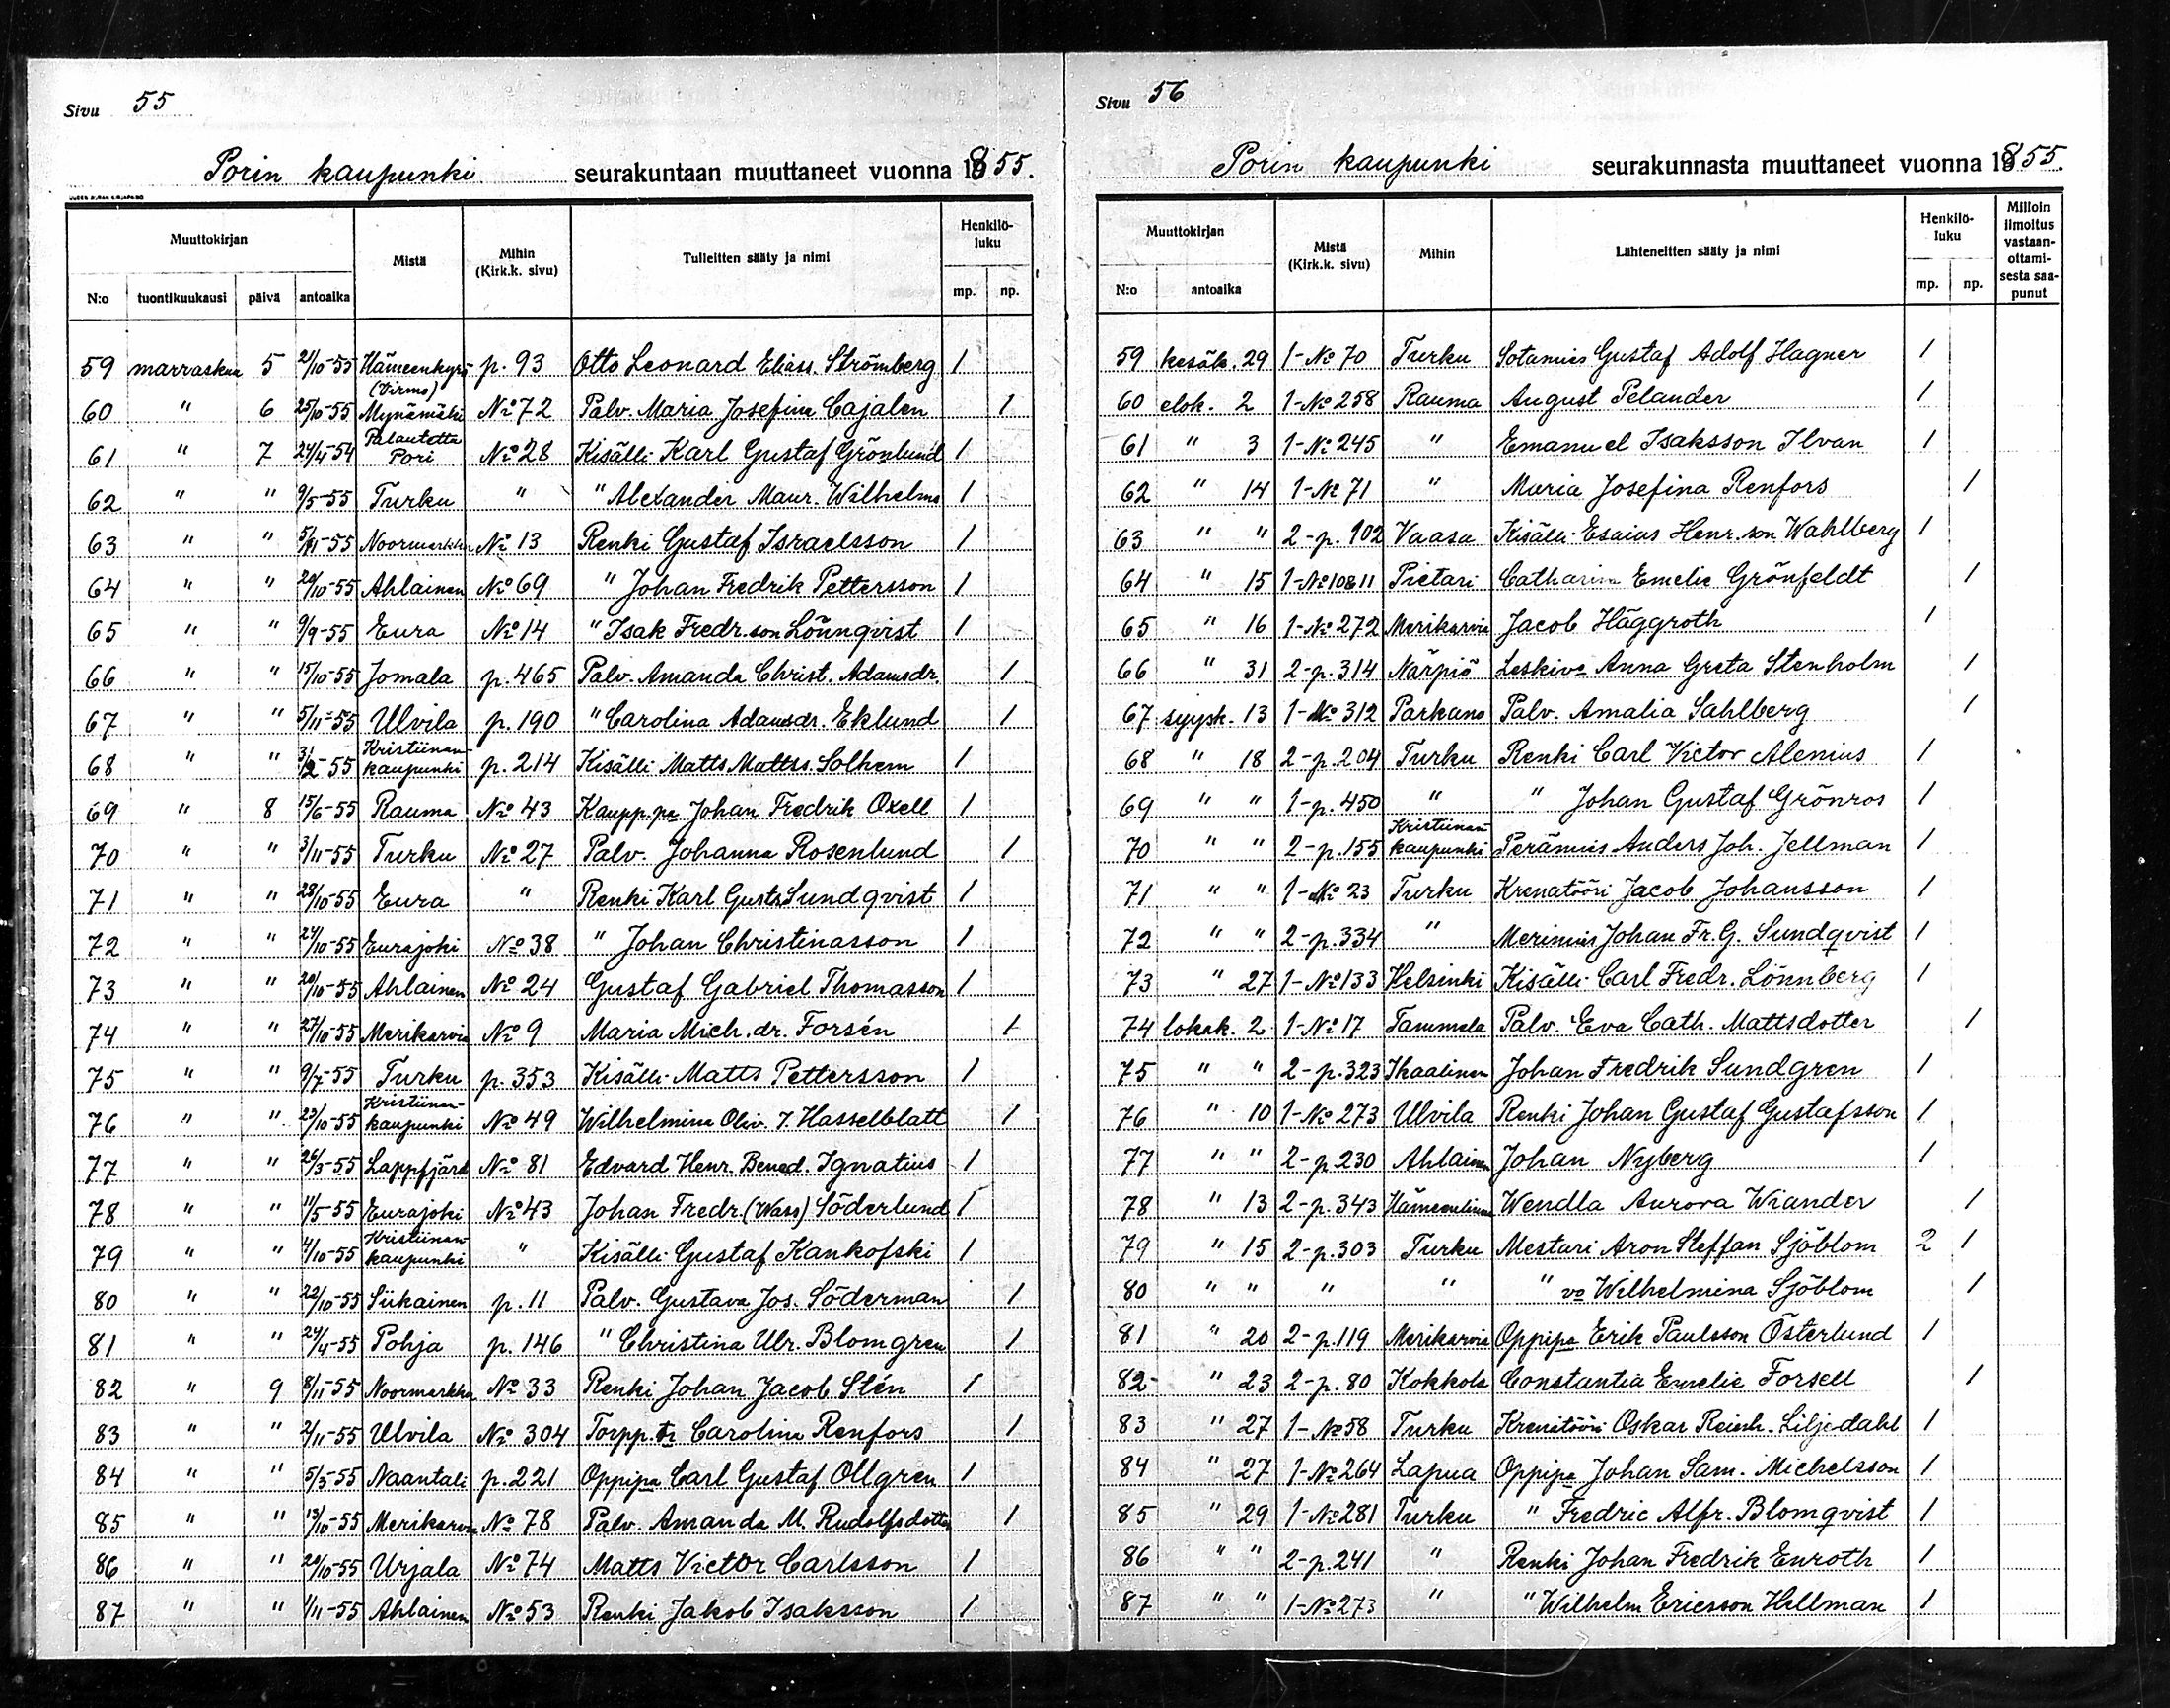 Sivu 55
Porin kaupunki seurakuntaan muuttaneet vuonna 1855.
Muuttokirjan Mistä Mihin (Kirk.k. sivu) Tulleitten sääty ja nimi Henkilöluku
N:o tuontikuukausi päivä antoaika mp. np.
59 marraskuu 5 21/10-55 Hämeenkyrö p. 93 Otto Leonard Eliass. Strömberg 1
60 " 6 25/10-55 (Virmo) Mynämäki No 72 Palv. Maria Josefina Cajalen 1
61 " 7 24/4-54 Palautettu Pori No 28 Kisälli Karl Gustaf Grönlund 1
62 " " 9/5-55 Turku " " Alexander Maur. Wilhelms 1
63 " " 5/11-55 Noormarkku No 13 Renki Gustaf Israelsson 1
64 " " 20/10-55 Ahlainen No 69 " Johan Fredrik Pettersson 1
65 " " 9/9-55 Eura No 14 " Isak Fredr.son Lönnqvist 1
66 " " 15/10-55 Jomala p. 465 Palv. Amanda Christ. Adamsdr. 1
67 " " 5/11-55 Ulvila p. 190 " Carolina Adamsdr. Eklund 1
68 " " 3/2-55 Kristiinankaupunki p. 214 Kisälli Matts Mattss. Solhem 1
69 " 8 15/6-55 Rauma No 43 Kaupp.pa Johan Fredrik Oxell 1
70 " " 3/11-55 Turku No 27 Palv. Johanna Rosenlund 1
71 " " 28/10-55 Eura " Renki Karl Gusts Sundqvist 1
72 " " 24/10-55 Eurajoki No 38 " Johan Christinasson 1
73 " " 20/10-55 Ahlainen No 24 Gustaf Gabriel Thomasson 1
74 " " 27/10-55 Merikarvia No 9 Maria Mich. dr. Forsén 1
75 " " 9/7-55 Turku p. 353 Kisälli Matts Pettersson 1
76 " " 23/10-55 Kristiinankaupunki No 49 Wilhelmina Oliv. J. Hasselblatt 1
77 " " 26/3-55 Lappfjärd No 81 Edvard Henr. Bened. Ignatius 1
78 " " 11/5-55 Eurajoki No 43 Johan Fredr. (Wass) Söderlund 1
79 " " 4/10-55 Kristiinankaupunki " Kisälli Gustaf Kankofski 1
80 " " 22/10-55 Siikainen p. 11 Palv. Gustava Jos. Söderman 1
81 " " 24/4-55 Pohja p. 146 " Christina Ulr. Blomgren 1
82 " 9 8/11-55 Noormarkku No 33 Renki Johan Jacob Stén 1
83 " " 2/11-55 Ulvila No 304 Torpp. tr Carolina Renfors 1
84 " " 5/5-55 Naantali p. 221 Oppipa Carl Gustaf Ollgren 1
85 " " 13/10-55 Merikarvia No 78 Palv. Amanda M. Rudolfsdotter 1
86 " " 20/10-55 Urjala No 74 Matts Victor Carlsson 1
87 " " 1/11-55 Ahlainen No 53 Renki Jakob Isaksson 1
Sivu 56
Porin kaupunki seurakunnasta muuttaneet vuonna 1855.
Muuttokirjan Mistä (Kirk.k. sivu) Mihin Lähteneitten sääty ja nimi Henkilöluku Milloin ilmoitus vastaanottamisesta saapunut
N:o antoaika mp. np.
59 kesäk. 29 1-No 70 Turku Sotamies Gustaf Adolf Hagner 1
60 elok. 2 1-No 258 Rauma August Pelander 1
61 " 3 1-No 245 " Emanuel Isaksson Ilvan 1
62 " 14 1-No 71 " Maria Josefina Renfors 1
63 " " 2-p. 102 Vaasa Kisälli Esaias Henr.son Wahlberg 1
64 " 15 1-No 10811 Pietari Catharina Emelie Grönfeldt 1
65 " 16 1-No 272 Merikarvia Jacob Häggroth 1
66 " 31 2-p. 314 Närpiö Leskivo Anna Greta Stenholm 1
67 syysk. 13 1-No 312 Parkano Palv. Amalia Sahlberg 1
68 " 18 2-p. 204 Turku Renki Carl Victor Alenius 1
69 " " 1-p. 450 " " Johan Gustaf Grönros 1
70 " " 2-p. 155 Kristiinankaupunki Perämies Anders Joh. Jellman 1
71 " " 1-No 23 Turku Krenatööri Jacob Johansson 1
72 " " 2-p. 334 " Merimies Johan Fr. G. Sundqvist 1
73 " 27 1-No 133 Helsinki Kisälli Carl Fredr. Lönnberg 1
74 lokak. 2 1-No 17 Tammela Palv. Eva Cath. Mattsdotter 1
75 " " 2-p. 323 Ikaalinen Johan Fredrik Sundgren 1
76 " 10 1-No 273 Ulvila Renki Johan Gustaf Gustafsson 1
77 " " 2-p. 230 Ahlainen Johan Nyberg 1
78 " 13 2-p. 343 Hämeenlinna Wendla Aurora Wiander 1
79 " 15 2-p. 303 Turku Mestari Aron Steffan Sjöblom 2 1
80 " " " " " vo Wilhelmina Sjöblom 1
81 " 20 2-p. 119 Merikarvia Oppipa Erik Paulsson Österlund 1
82 " 23 2-p. 80 Kokkola Constantia Emelie Forsell 1
83 " 27 1-No 58 Turku Krenatööri Oskar Reinh. Liljedahl 1
84 " 27 1-No 264 Lapua Oppipa Johan Sam. Michelsson 1
85 " 29 1-No 281 Turku " Fredric Alfr. Blomqvist 1
86 " " 2-p. 241 " Renki Johan Fredrik Enroth 1
87 " " 1-No 273 " " Wilhelm Ericsson Hellman 1